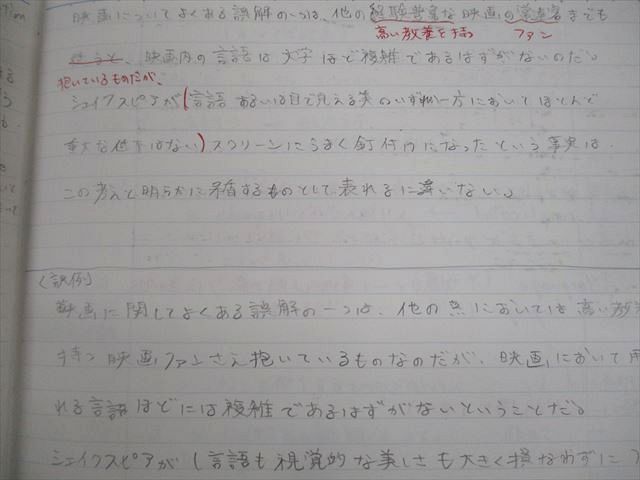 映画についてよくある誤解の一つは、他の経験豊富な映画の常連客までも
高い教養を持つ ファン
映画内の言語は文字ほど複雑であるはずがないのだ。
抱いているものだが、
シェイクスピアが(言語あるいは目で見える美のいずれか一方においてほとんど
重大な低下はない)スクリーンにうまく釘付けになったという事実は、
この考えと明らかに矛盾するものとして表れるに違いない。
(訳例)
映画に関してよくある誤解の一つは、他の点においては高い教
持つ映画ファンさえ抱いているものなのだが、映画において用
れる言語ほどには複雑であるはずがないということだ。
シェイクスピアが(言語も視覚的な美しさも大きく損なわずに)